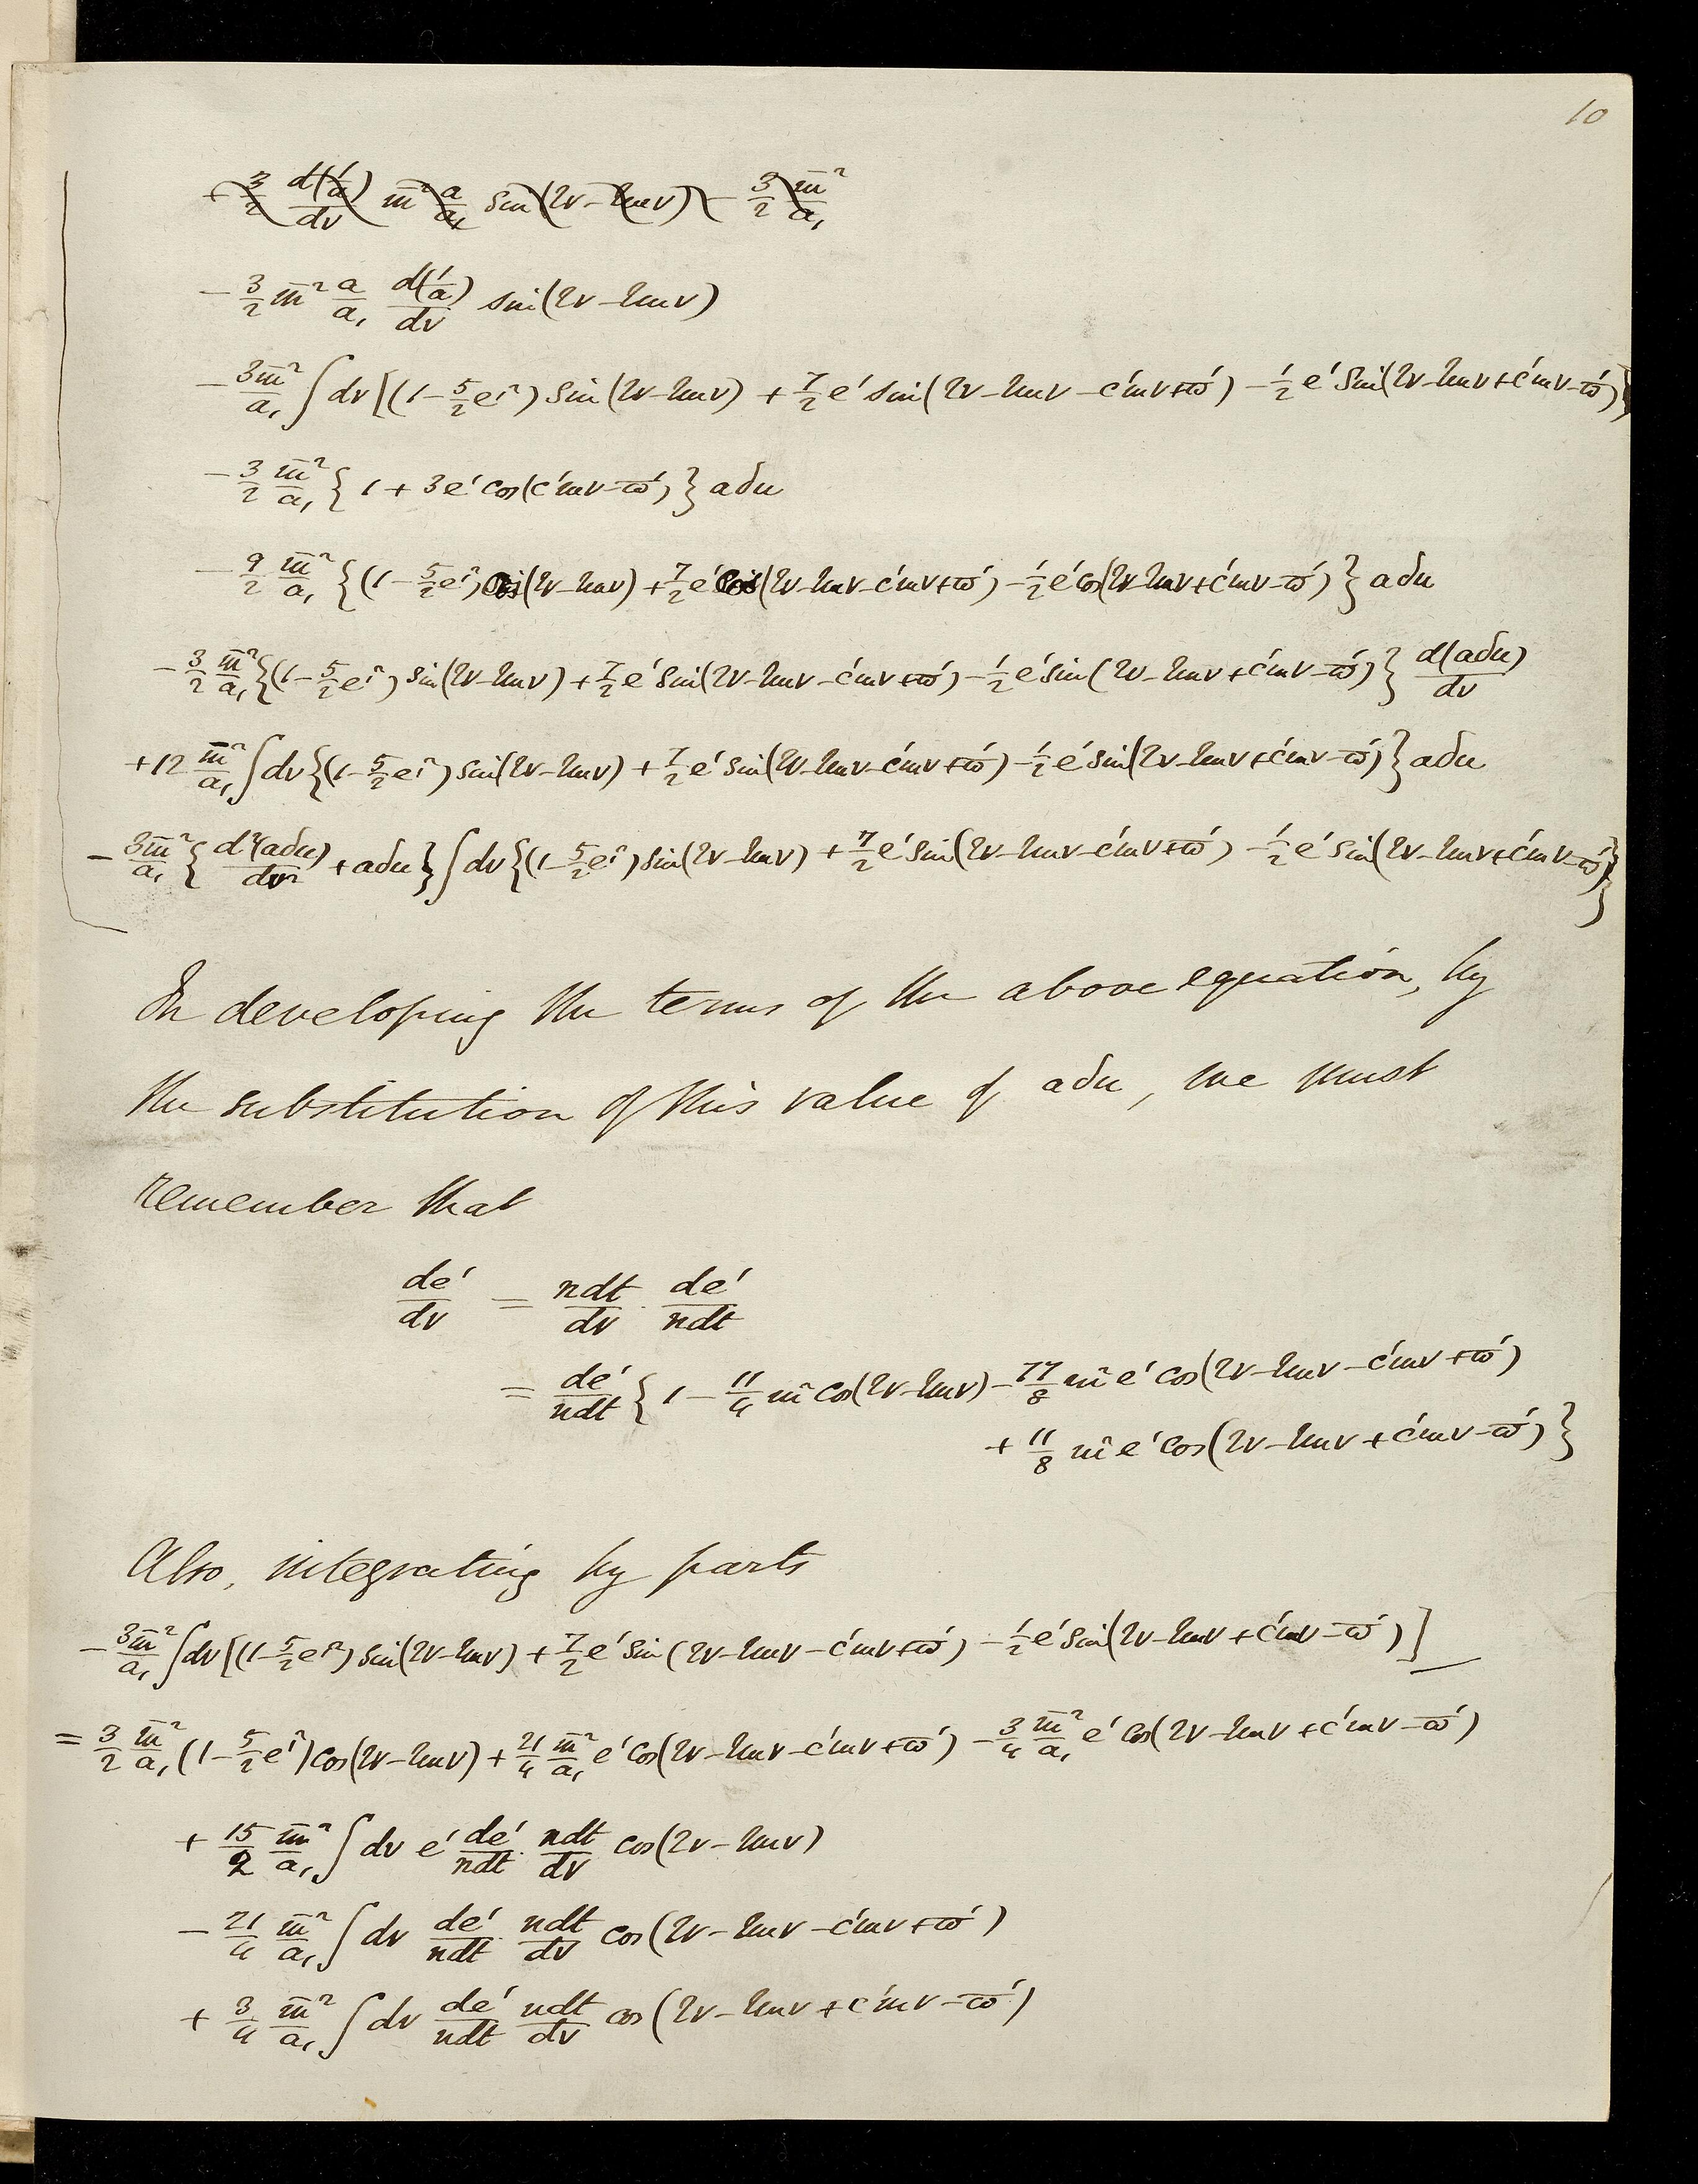 10
+ 3/2 d(1/a)/dν m̄² a/a₁ sin(2ν-2mν) - 3/2 m̄²/a₁
- 3/2 m̄² a/a₁ d(1/a)/dν sin(2ν-2mν)
- 3m̄²/a₁ ∫dν[(1-5/2 e′²) sin(2ν-2mν) + 7/2 e′ sin(2ν-2mν-c′mν+ϖ′) - 1/2 e′ sin(2ν-2mν+c′mν-ϖ′)]
- 3/2 m̄²/a₁ {1 + 3e′ cos(c′mν-ϖ′)} aδu
- 9/2 m̄²/a₁ {(1-5/2 e′²) cos(2ν-2mν) + 7/2 e′ cos(2ν-2mν-c′mν+ϖ′) - 1/2 e′ cos(2ν-2mν+c′mν-ϖ′)} aδu
- 3/2 m̄²/a₁ {(1-5/2 e′²) sin(2ν-2mν) + 7/2 e′ sin(2ν-2mν-c′mν+ϖ′) - 1/2 e′ sin(2ν-2mν+c′mν-ϖ′)} d(aδu)/dν
+12 m̄²/a₁ ∫dν{(1-5/2 e′²) sin(2ν-2mν) + 7/2 e′ sin(2ν-2mν-c′mν+ϖ′) - 1/2 e′ sin(2ν-2mν+c′mν-ϖ′)} aδu
- 3m̄²/a₁ {d²(aδu)/dν² + aδu} ∫dν{(1-5/2 e′²) sin(2ν-2mν) + 7/2 e′ sin(2ν-2mν-c′mν+ϖ′) - 1/2 e′ sin(2ν-2mν+c′mν-ϖ′)}
In developing the terms of the above equation, by
the substitution of this value of aδu, we must
remember that
de′/dν = ndt/dν . de′/ndt
= de′/ndt {1 - 11/4 m² cos(2ν-2mν) - 77/8 m² e′ cos(2ν-2mν-c′mν+ϖ′)
+ 11/8 m² e′ cos(2ν-2mν+c′mν-ϖ′)}
Also, integrating by parts
- 3m̄²/a₁ ∫dν[(1-5/2 e′²) sin(2ν-2mν) + 7/2 e′ sin(2ν-2mν-c′mν+ϖ′) - 1/2 e′ sin(2ν-2mν+c′mν-ϖ′)]
= 3/2 m̄²/a₁ (1-5/2 e′²) cos(2ν-2mν) + 21/4 m̄²/a₁ e′ cos(2ν-2mν-c′mν+ϖ′) - 3/4 m̄²/a₁ e′ cos(2ν-2mν+c′mν-ϖ′)
+ 15/2 m̄²/a₁ ∫dν e′ de′/ndt . ndt/dν cos(2ν-2mν)
- 21/4 m̄²/a₁ ∫dν de′/ndt . ndt/dν cos(2ν-2mν-c′mν+ϖ′)
+ 3/4 m̄²/a₁ ∫dν de′/ndt ndt/dν cos(2ν-2mν+c′mν-ϖ′)